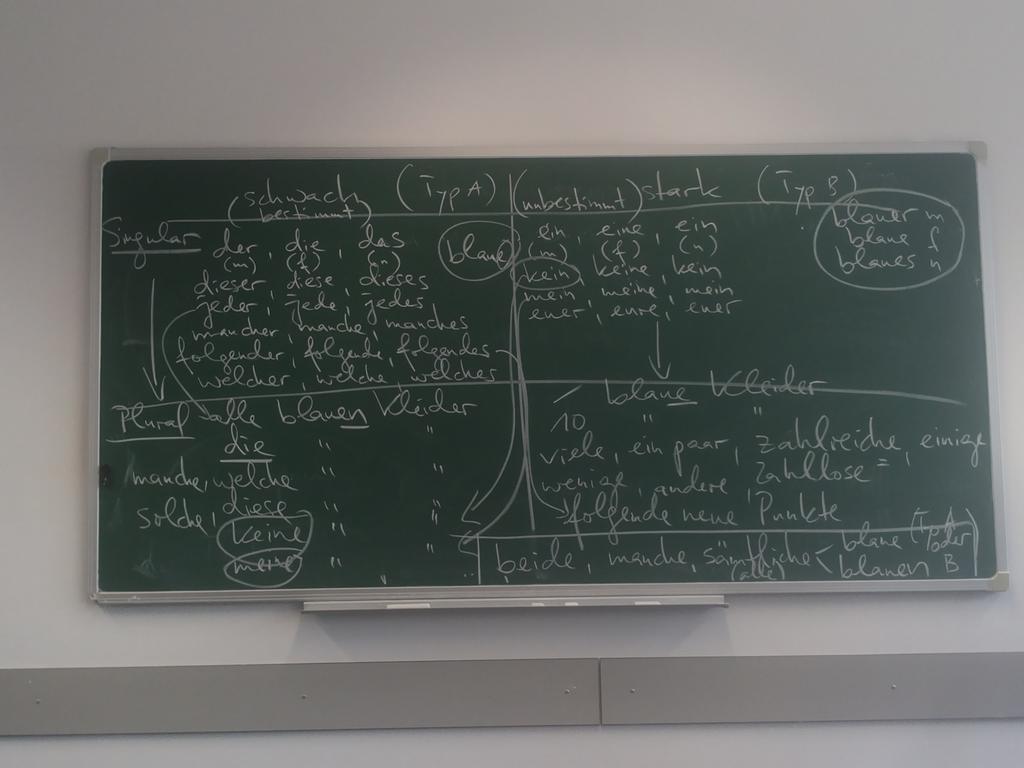 schwach (Typ A)
(bestimmt)
Singular der, die, das
(m) (f) (n)
dieser, diese, dieses
jeder, jede, jedes
mancher, manche, manches
folgender, folgende, folgendes
welcher, welche, welches
blaue
(unbestimmt) stark (Typ B)
ein, eine, ein
(m) (f) (n)
kein, keine, kein
mein, meine, mein
euer, eure, euer
blauer m
blaue f
blaues n
Plural alle blauen Kleider
die " "
manche, welche " "
solche, diese " "
keine " "
meine "
/ blaue Kleider
10 " "
viele, ein paar, zahlreiche, einige
wenige, andere, zahllose =
folgende neue Punkte
beide, manche, sämtliche < blaue (Typ A
(alle) blauen oder B